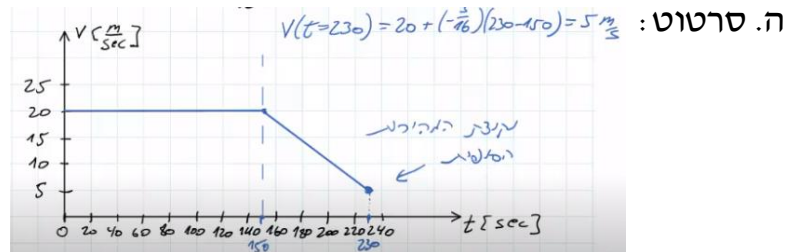 ה. סרטוט:
V(t=230) = 20 + (-3/16)(230-150) = 5 m/s
V [m/sec]
25
20
15
10
5
נקודת המהירות
הסופית
0 20 40 60 80 100 120 140 160 180 200 220 240
t [sec]
150 230